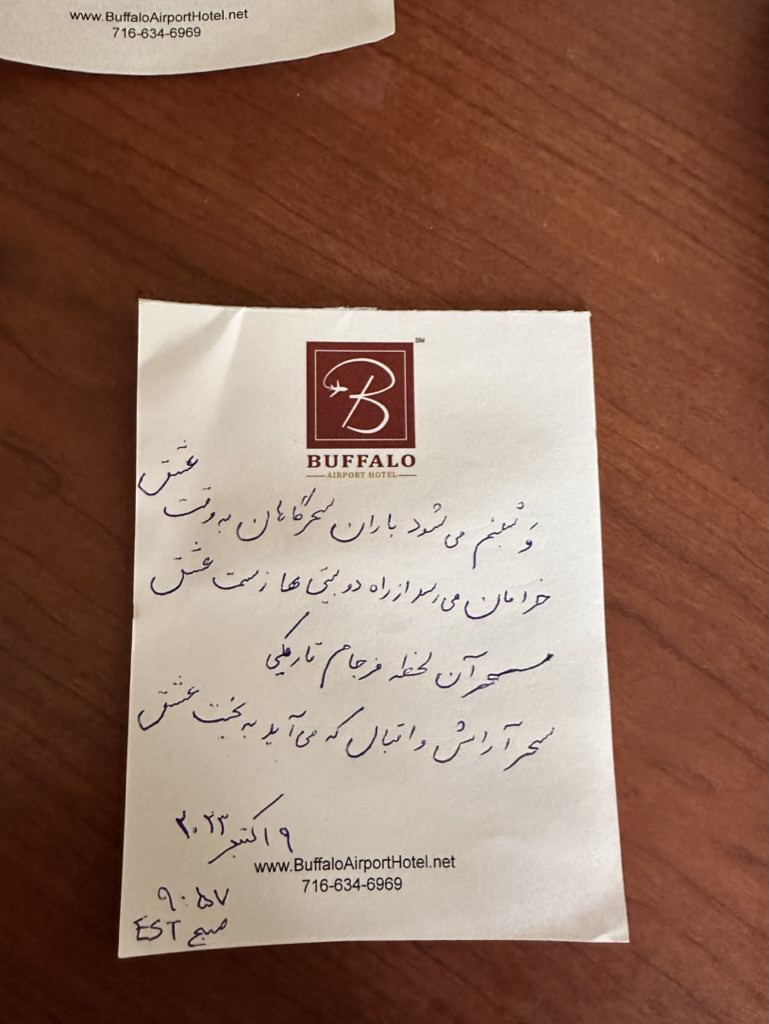 www.BuffaloAirportHotel.net
716-634-6969
SM
B
BUFFALO
AIRPORT HOTEL
وَ شبنم می شود باران سحرگاهان به وقت عشق
خرامان می رسد از راه دو بیتی ها ز سمت عشق
سحر آن لحظهٔ فرجام تاریکی
سحر آرامش و اقبال که می آید به بخت عشق
۹ اکتبر ۲۰۲۳
www.BuffaloAirportHotel.net
716-634-6969
۹:۵۷
صبح EST